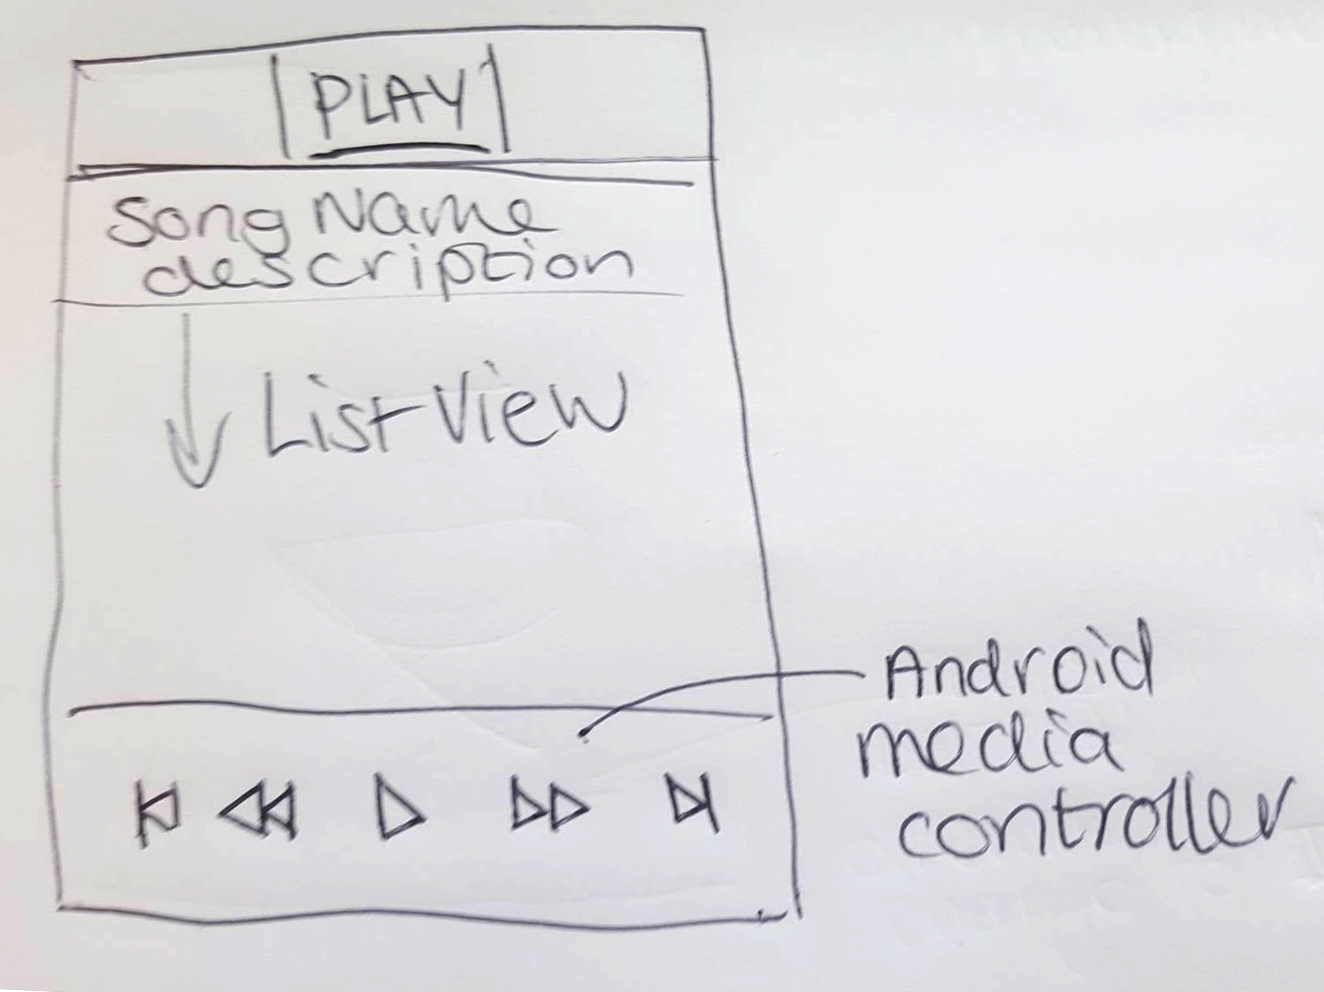 PLAY
Song Name
description
List View
Android
media
controller